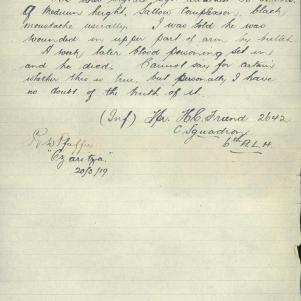 of Medium height, Sallow Complexion, Black
moustache usually. I was told he was
wounded in upper part of arm by bullet
A week later blood poisoning set in
and he died. Cannot say for certain
whether this is true, but personally I have
no doubt of the truth of it.
(Inf) Tpr. H.C. Friend 2642
C Squadron
6th A.L.H.
"Czaritza"
20/3/19